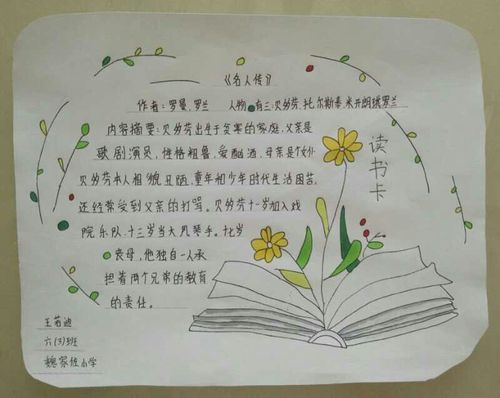 《名人传》
作者：罗曼.罗兰 人物：有三:贝多芬.托尔斯泰 米开朗琪罗兰
内容摘要：贝多芬出生于贫寒的家庭，父亲是
歌剧演员，性格粗鲁，爱酗酒，母亲是个女仆
贝多芬本人相貌丑陋，童年和少年时代生活困苦，
还经常受到父亲的打骂。贝多芬十一岁加入戏
院乐队，十三岁当大风琴手。十七岁
丧母，他独自一人承
担着两个兄弟的教育
的责任。
读书卡
王若
六(3)班
魏家经小学